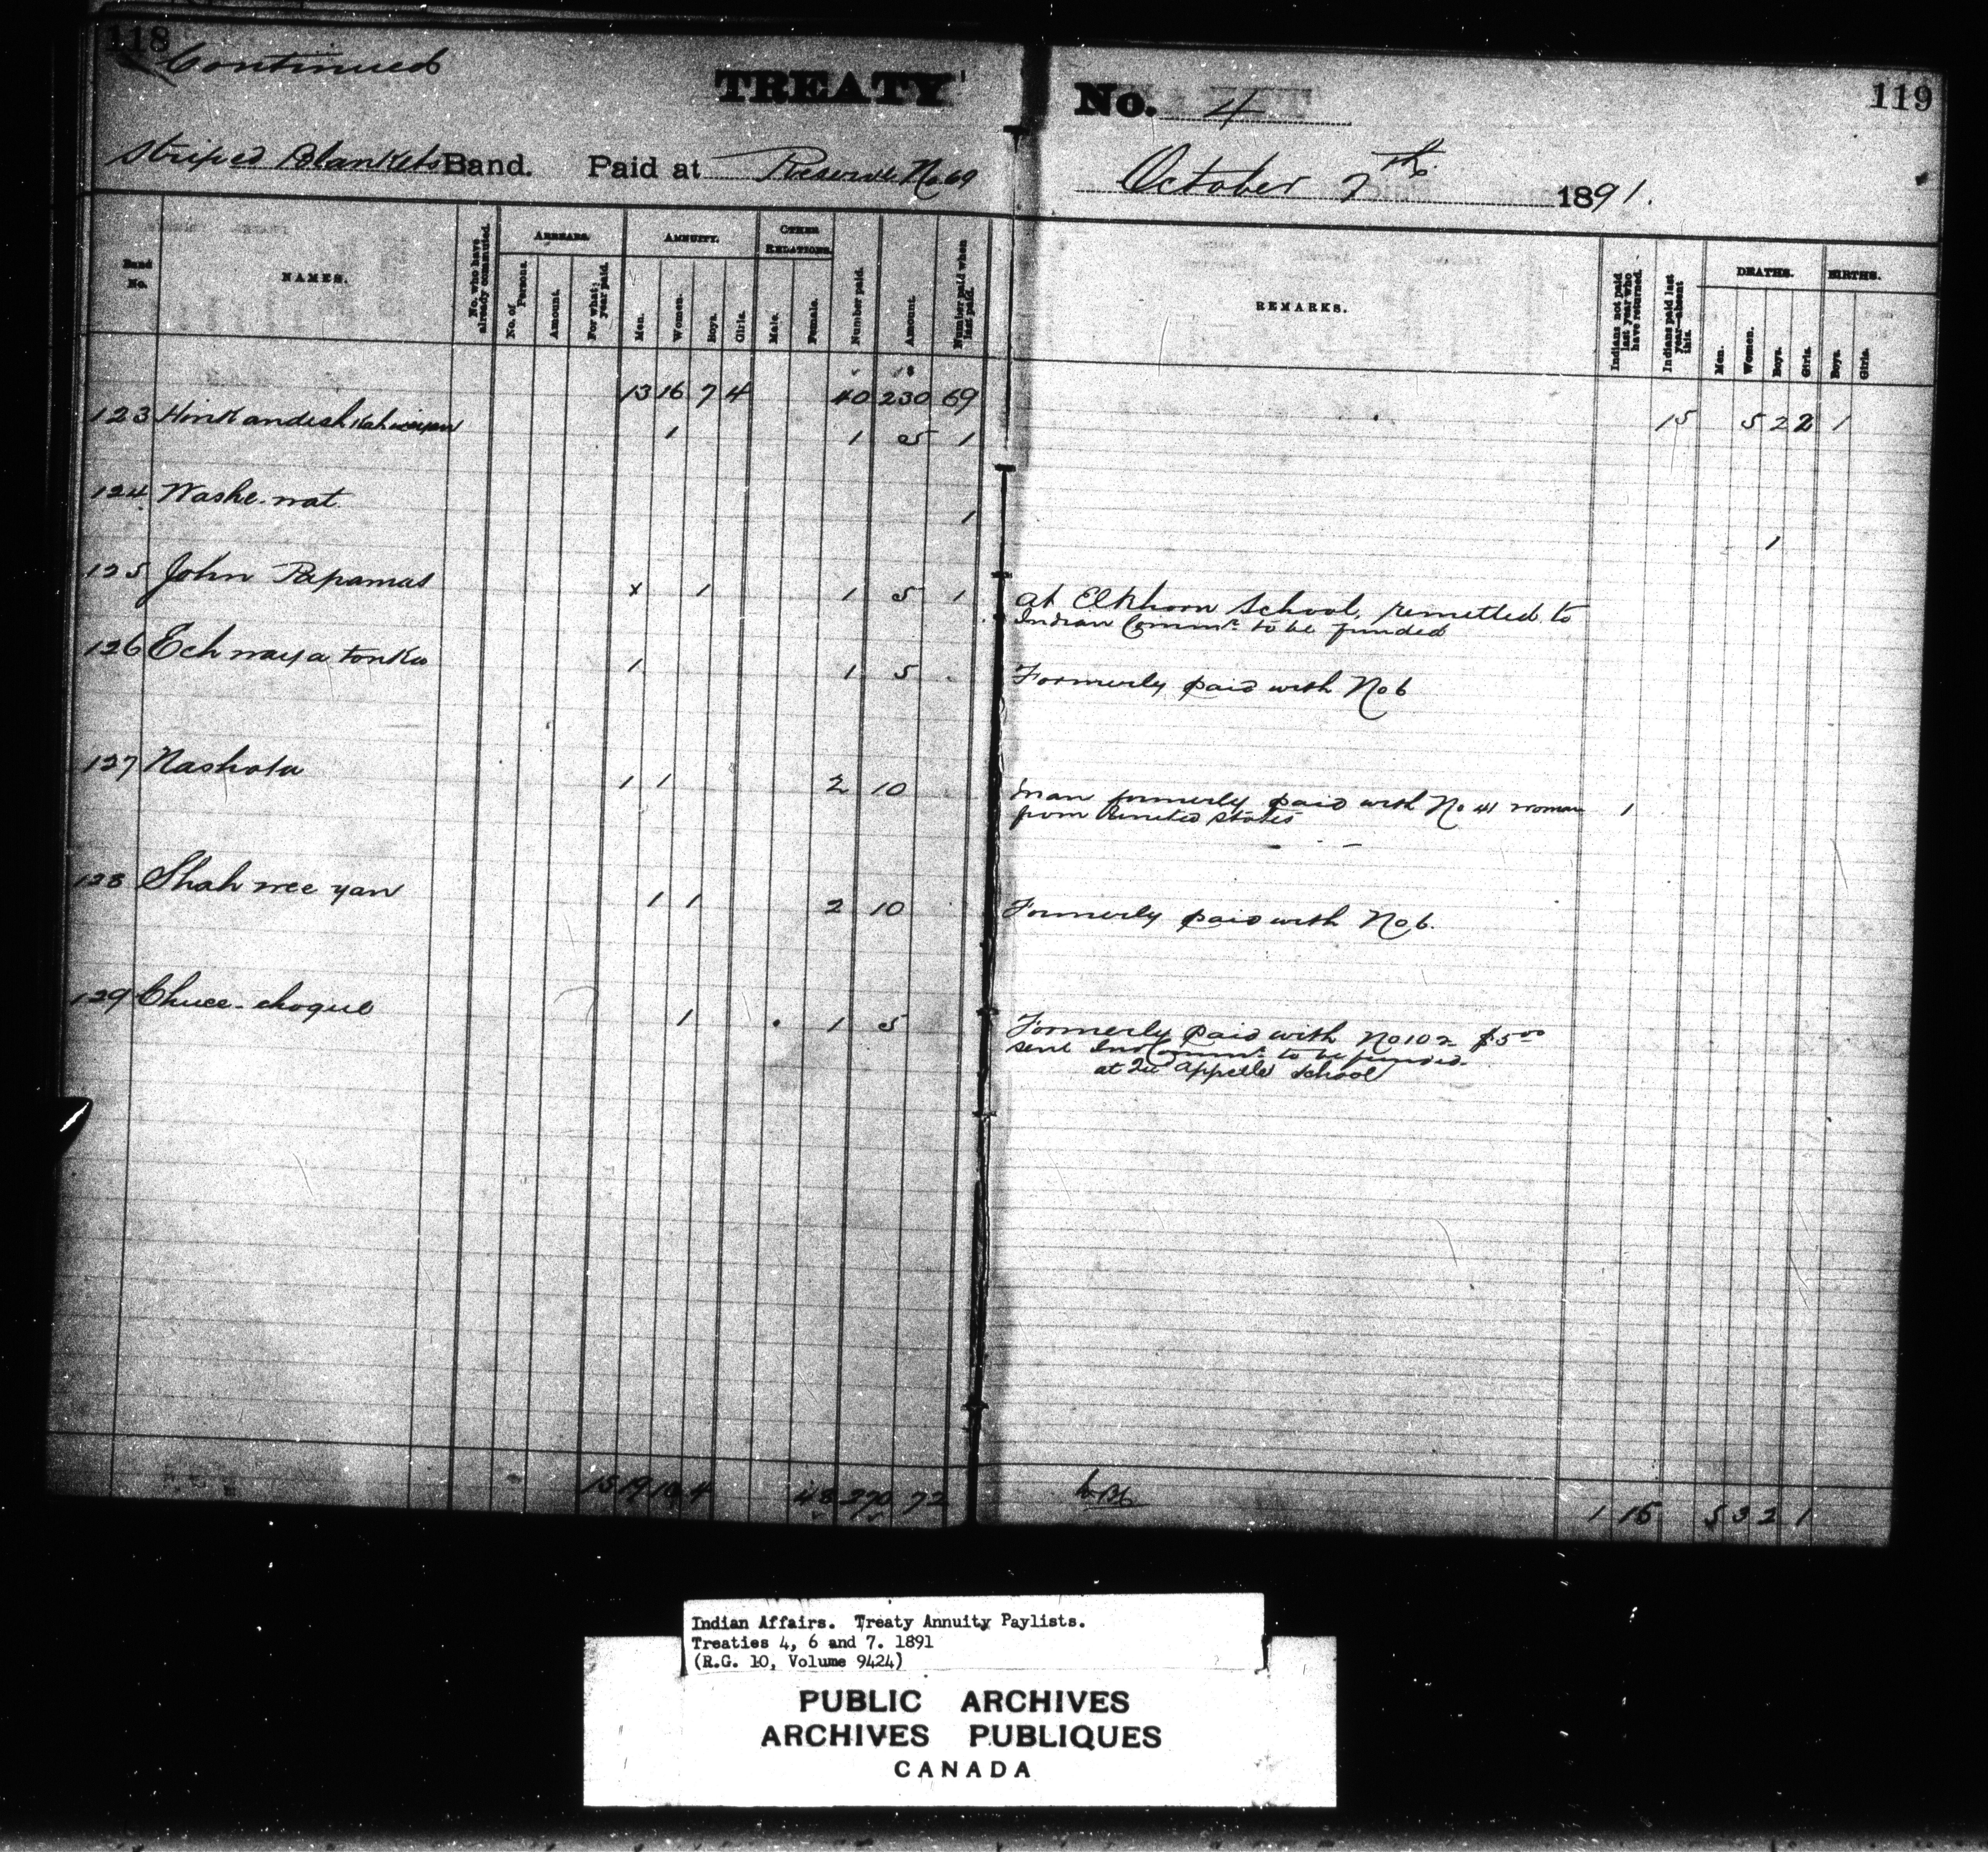 118
Continued
TREATY No. 4
119
Striped Blankets Band. Paid at Reserve No 69
October 7th 1891.
Band No.
NAMES.
No. who have already commuted.
ARREARS.
No. of Persons.
Amount.
For what year paid.
ANNUITY.
Men.
Women.
Boys.
Girls.
OTHER RELATIONS.
Male.
Female.
Number paid.
Amount.
Number paid when last paid.
REMARKS.
Indians not paid last year who have returned.
Indians paid last year—absent this.
DEATHS.
Men.
Women.
Boys.
Girls.
BIRTHS.
Boys.
Girls.
13 16 7 4 40 230 69
15 5 2 2 1
123 1 1 5 1
124 Washe-wat 1 1
125 John Papamas x 1 1 5 1 at Elkhorn School, remitted to
Indian Commr to be funded
126 Echwaya tonka 1 1 5 Formerly paid with No 6
127 Nashota 1 1 2 10 Man formerly paid with No 41 woman 1
from United States
128 Shah wee yan 1 1 2 10 Formerly paid with No 6.
129 Chuce-choque 1 1 5 Formerly paid with No 102 $5.00
sent Ind Commr to be funded
at Qu'Appelle School
15 19 10 4 48 270 72
1 15 5 3 2 1
Indian Affairs. Treaty Annuity Paylists.
Treaties 4, 6 and 7. 1891
(R.G. 10, Volume 9424)
PUBLIC ARCHIVES
ARCHIVES PUBLIQUES
CANADA